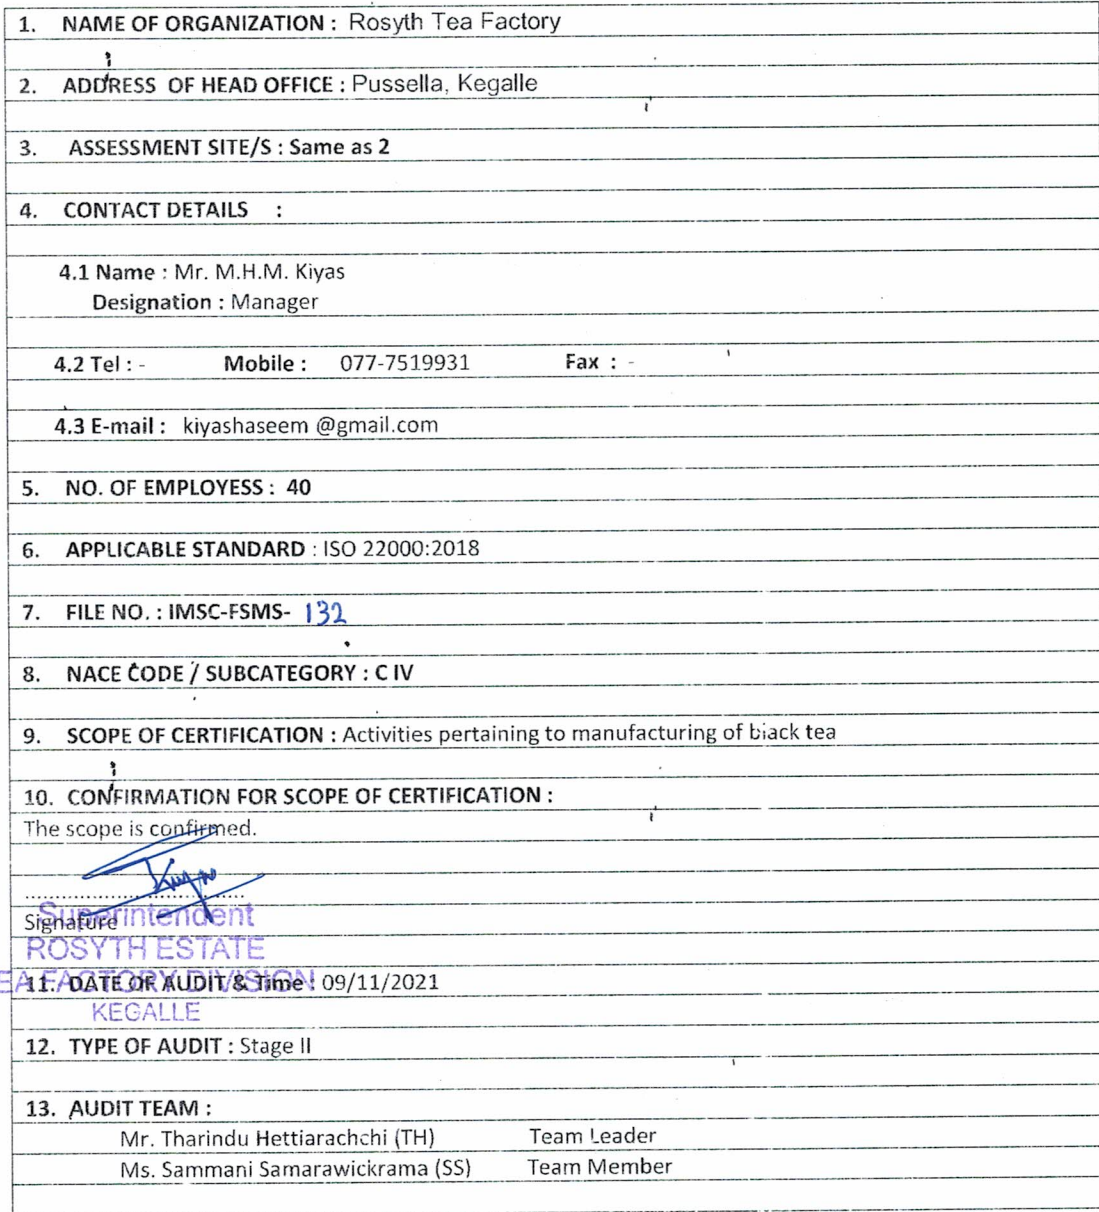 1. NAME OF ORGANIZATION : Rosyth Tea Factory
2. ADDRESS OF HEAD OFFICE : Pussella, Kegalle
3. ASSESSMENT SITE/S : Same as 2
4. CONTACT DETAILS :
4.1 Name : Mr. M.H.M. Kiyas
Designation : Manager
4.2 Tel : - Mobile : 077-7519931 Fax : -
4.3 E-mail : kiyashaseem @gmail.com
5. NO. OF EMPLOYESS : 40
6. APPLICABLE STANDARD : ISO 22000:2018
7. FILE NO. : IMSC-FSMS- 132
8. NACE CODE / SUBCATEGORY : C IV
9. SCOPE OF CERTIFICATION : Activities pertaining to manufacturing of black tea
10. CONFIRMATION FOR SCOPE OF CERTIFICATION :
The scope is confirmed.
Signature
Superintendent
ROSYTH ESTATE
EA FACTORY DIVISION
11. DATE OF AUDIT & Time : 09/11/2021
KEGALLE
12. TYPE OF AUDIT : Stage II
13. AUDIT TEAM :
Mr. Tharindu Hettiarachchi (TH) Team Leader
Ms. Sammani Samarawickrama (SS) Team Member